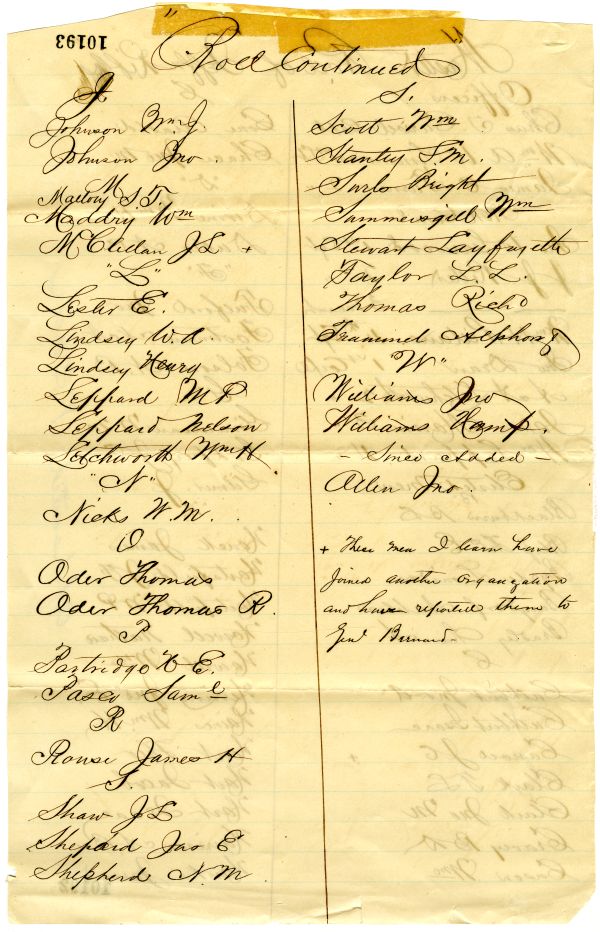 10193
"Roll Continued"
J
Johnson Wm J.
Johnson Jno.
M
Mallory S. T.
Maddry Wm
McClellan J L +
"L"
Lester E.
Lindsey W. A.
Lindsey Henry
Leppard M P
Leppard Nelson
Letchworth Wm H
"N"
Nicks W. M.
O
Oder Thomas
Oder Thomas R.
P
Partridge H E.
Pasco Saml
R
Rouse James H
S.
Shaw J L
Shepard Jno E
Shepherd N. M.
S.
Scott Wm
Stanley S. M.
Surls Bright
Summersgill Wm
Stewart Layfayette
Taylor L. L.
Thomas Richd
Trammel Alphonso
"W"
Williams Jno
Williams Hamp.
- Since Added -
Allen Jno.
+ These men I learn have
joined another organization
and have reported them to
Genl Bernard-